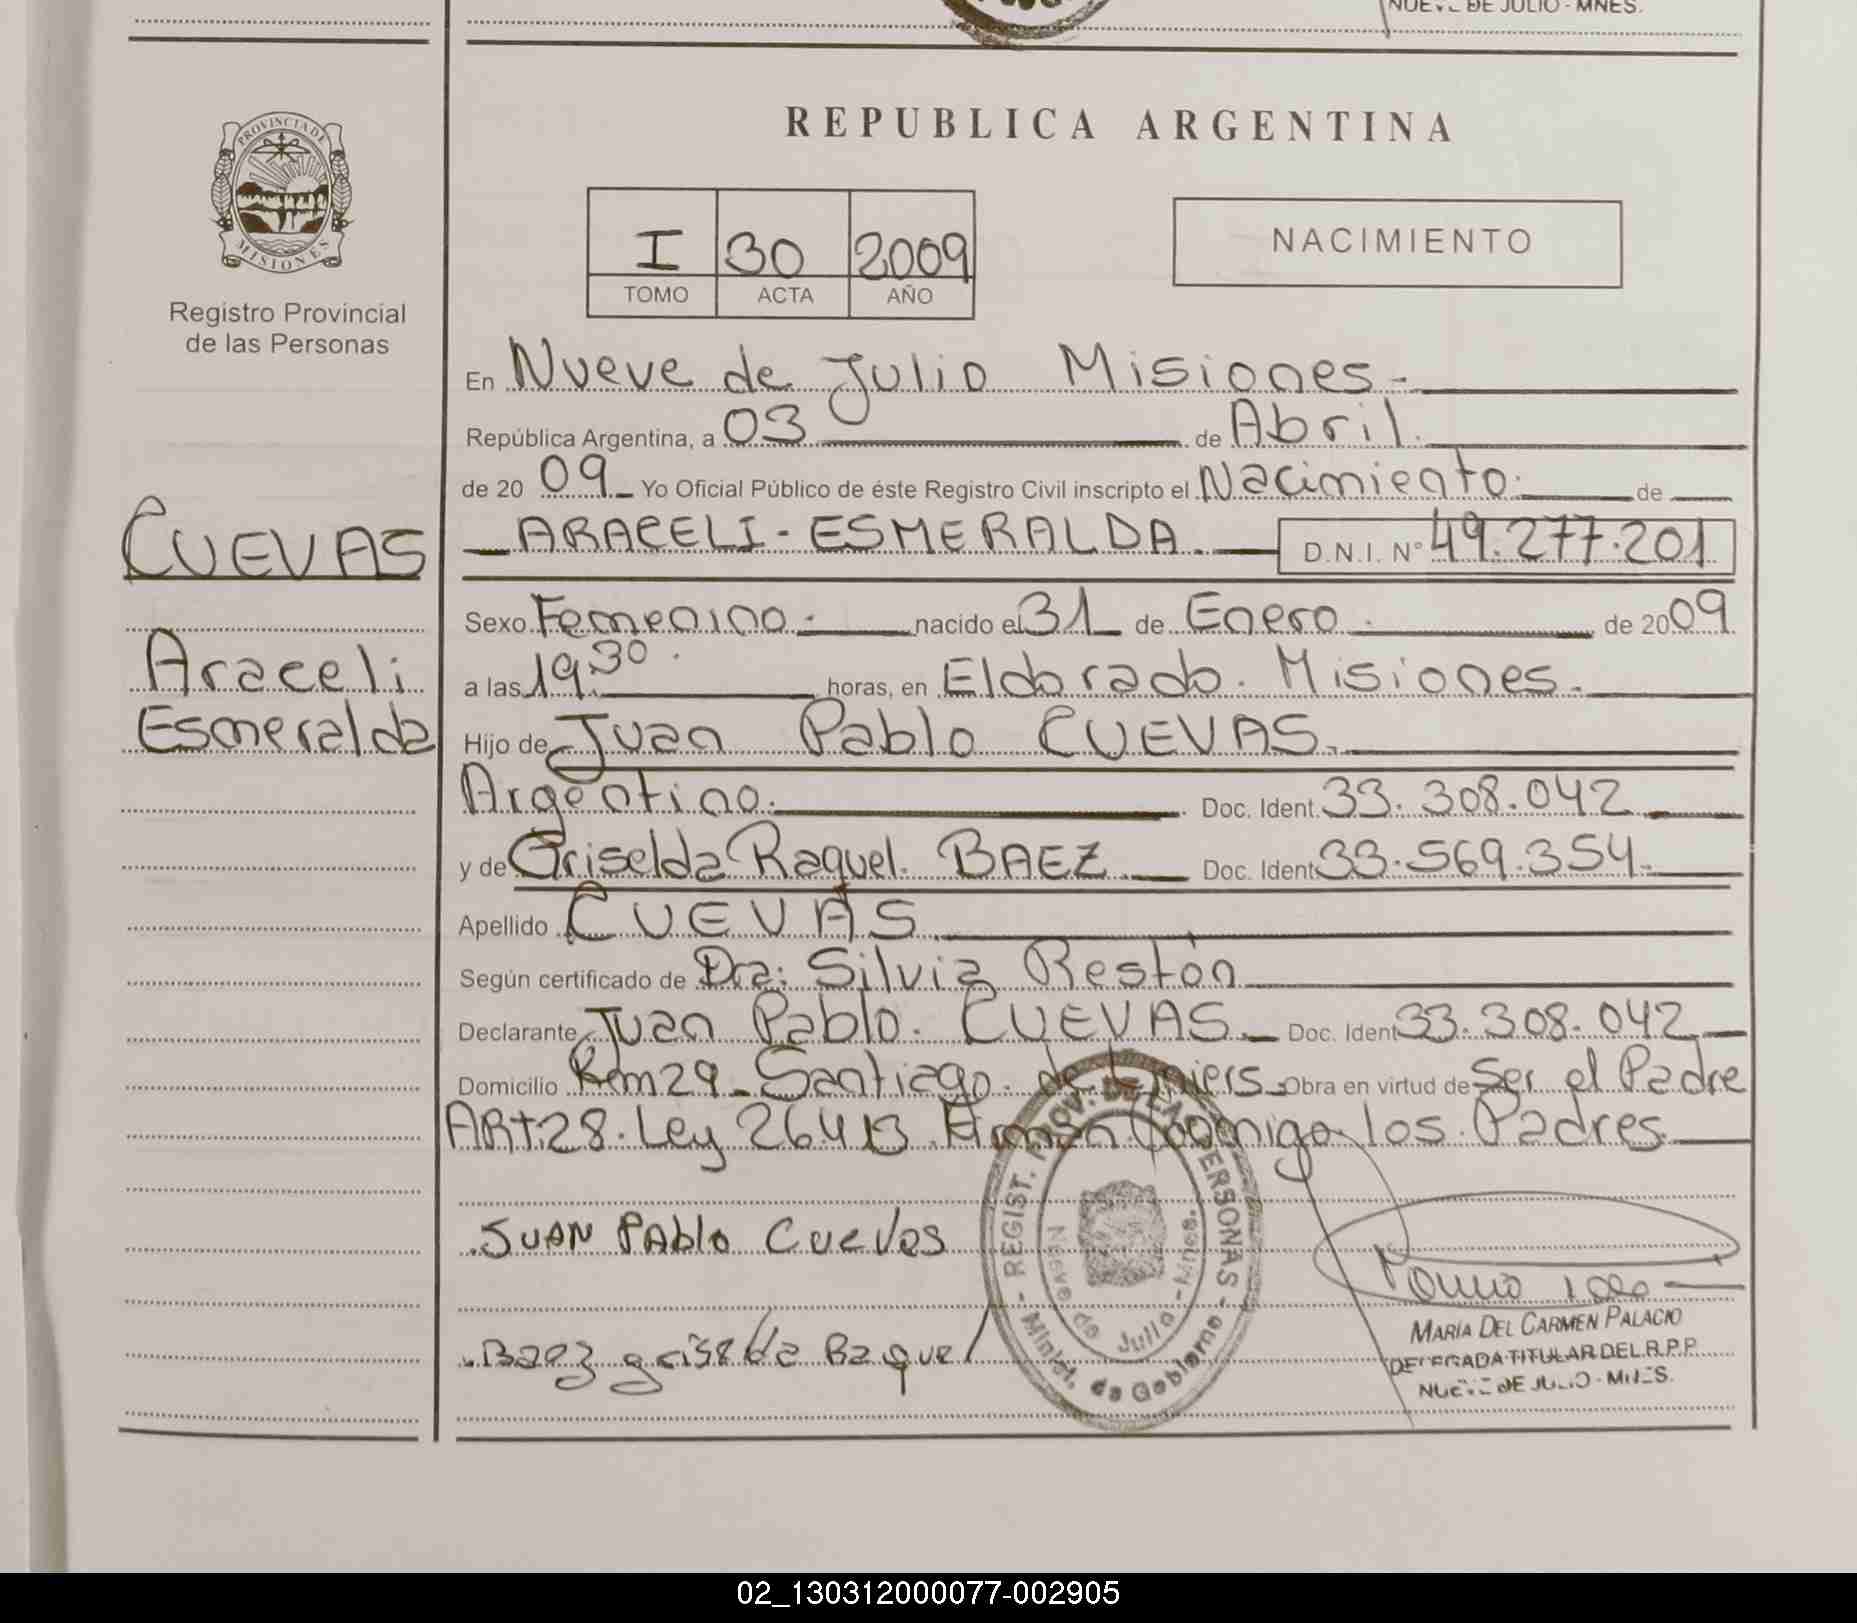 NUEVE DE JULIO - MNES.
PROVINCIA DE
MISIONES
Registro Provincial
de las Personas
CUEVAS
Araceli
Esmeralda
REPUBLICA ARGENTINA
I 30 2009
TOMO ACTA AÑO
NACIMIENTO
En Nueve de Julio Misiones.
República Argentina, a 03 de Abril.
de 20 09 Yo Oficial Público de éste Registro Civil inscripto el Nacimiento. de
ARACELI - ESMERALDA. D.N.I. N° 49.277.201
Sexo Femenino. nacido el 31 de Enero. de 2009
a las 19.30. horas, en Eldorado. Misiones.
Hijo de Juan Pablo CUEVAS.
Argentino. Doc. Ident. 33.308.042
y de Griselda Raquel. BAEZ. Doc. Ident. 33.569.354.
Apellido CUEVAS
Según certificado de Dra: Silvia Restón
Declarante Juan Pablo. CUEVAS. Doc. Ident. 33.308.042
Domicilio Km 29 - Santiago. de Liniers. Obra en virtud de Ser el Padre
ARt.28. Ley 26413. Firman Conmigo. los. Padres.
JUAN PAblo Cuevas
Baez griselda Raquel
REGIST. PROV. DE LAS PERSONAS
Minist. de Gobierno
Nueve de Julio - Mnes.
MARIA DEL CARMEN PALACIO
DELEGADA TITULAR DEL R.P.P.
NUEVE DE JULIO - MNES.
02_130312000077-002905